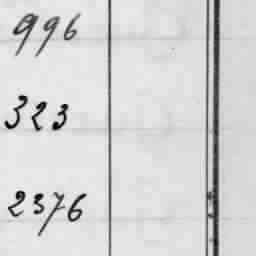 996
323
2376